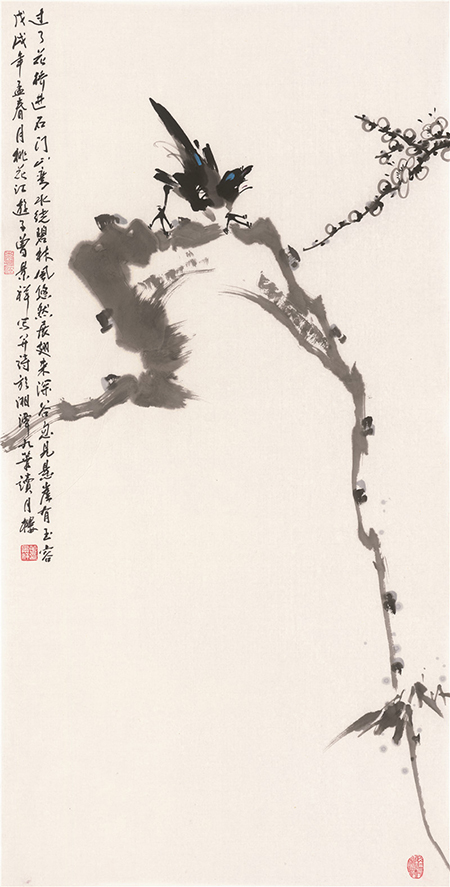 过了花桥进石门山重水绕碧林风悠然展翅来深谷忽见悬崖有玉容
戊戌年孟春月桃花江遊子曾景祥写并诗於湘潭九华讀月楼